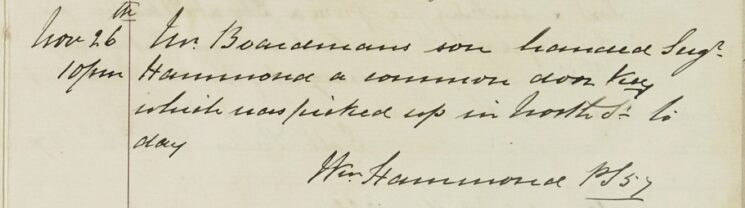 Nov 26th Mr. Boardmans son handed Sergt.
10pm Hammond a common door key
which was picked up in North St. to
day
Wm Hammond PS 57